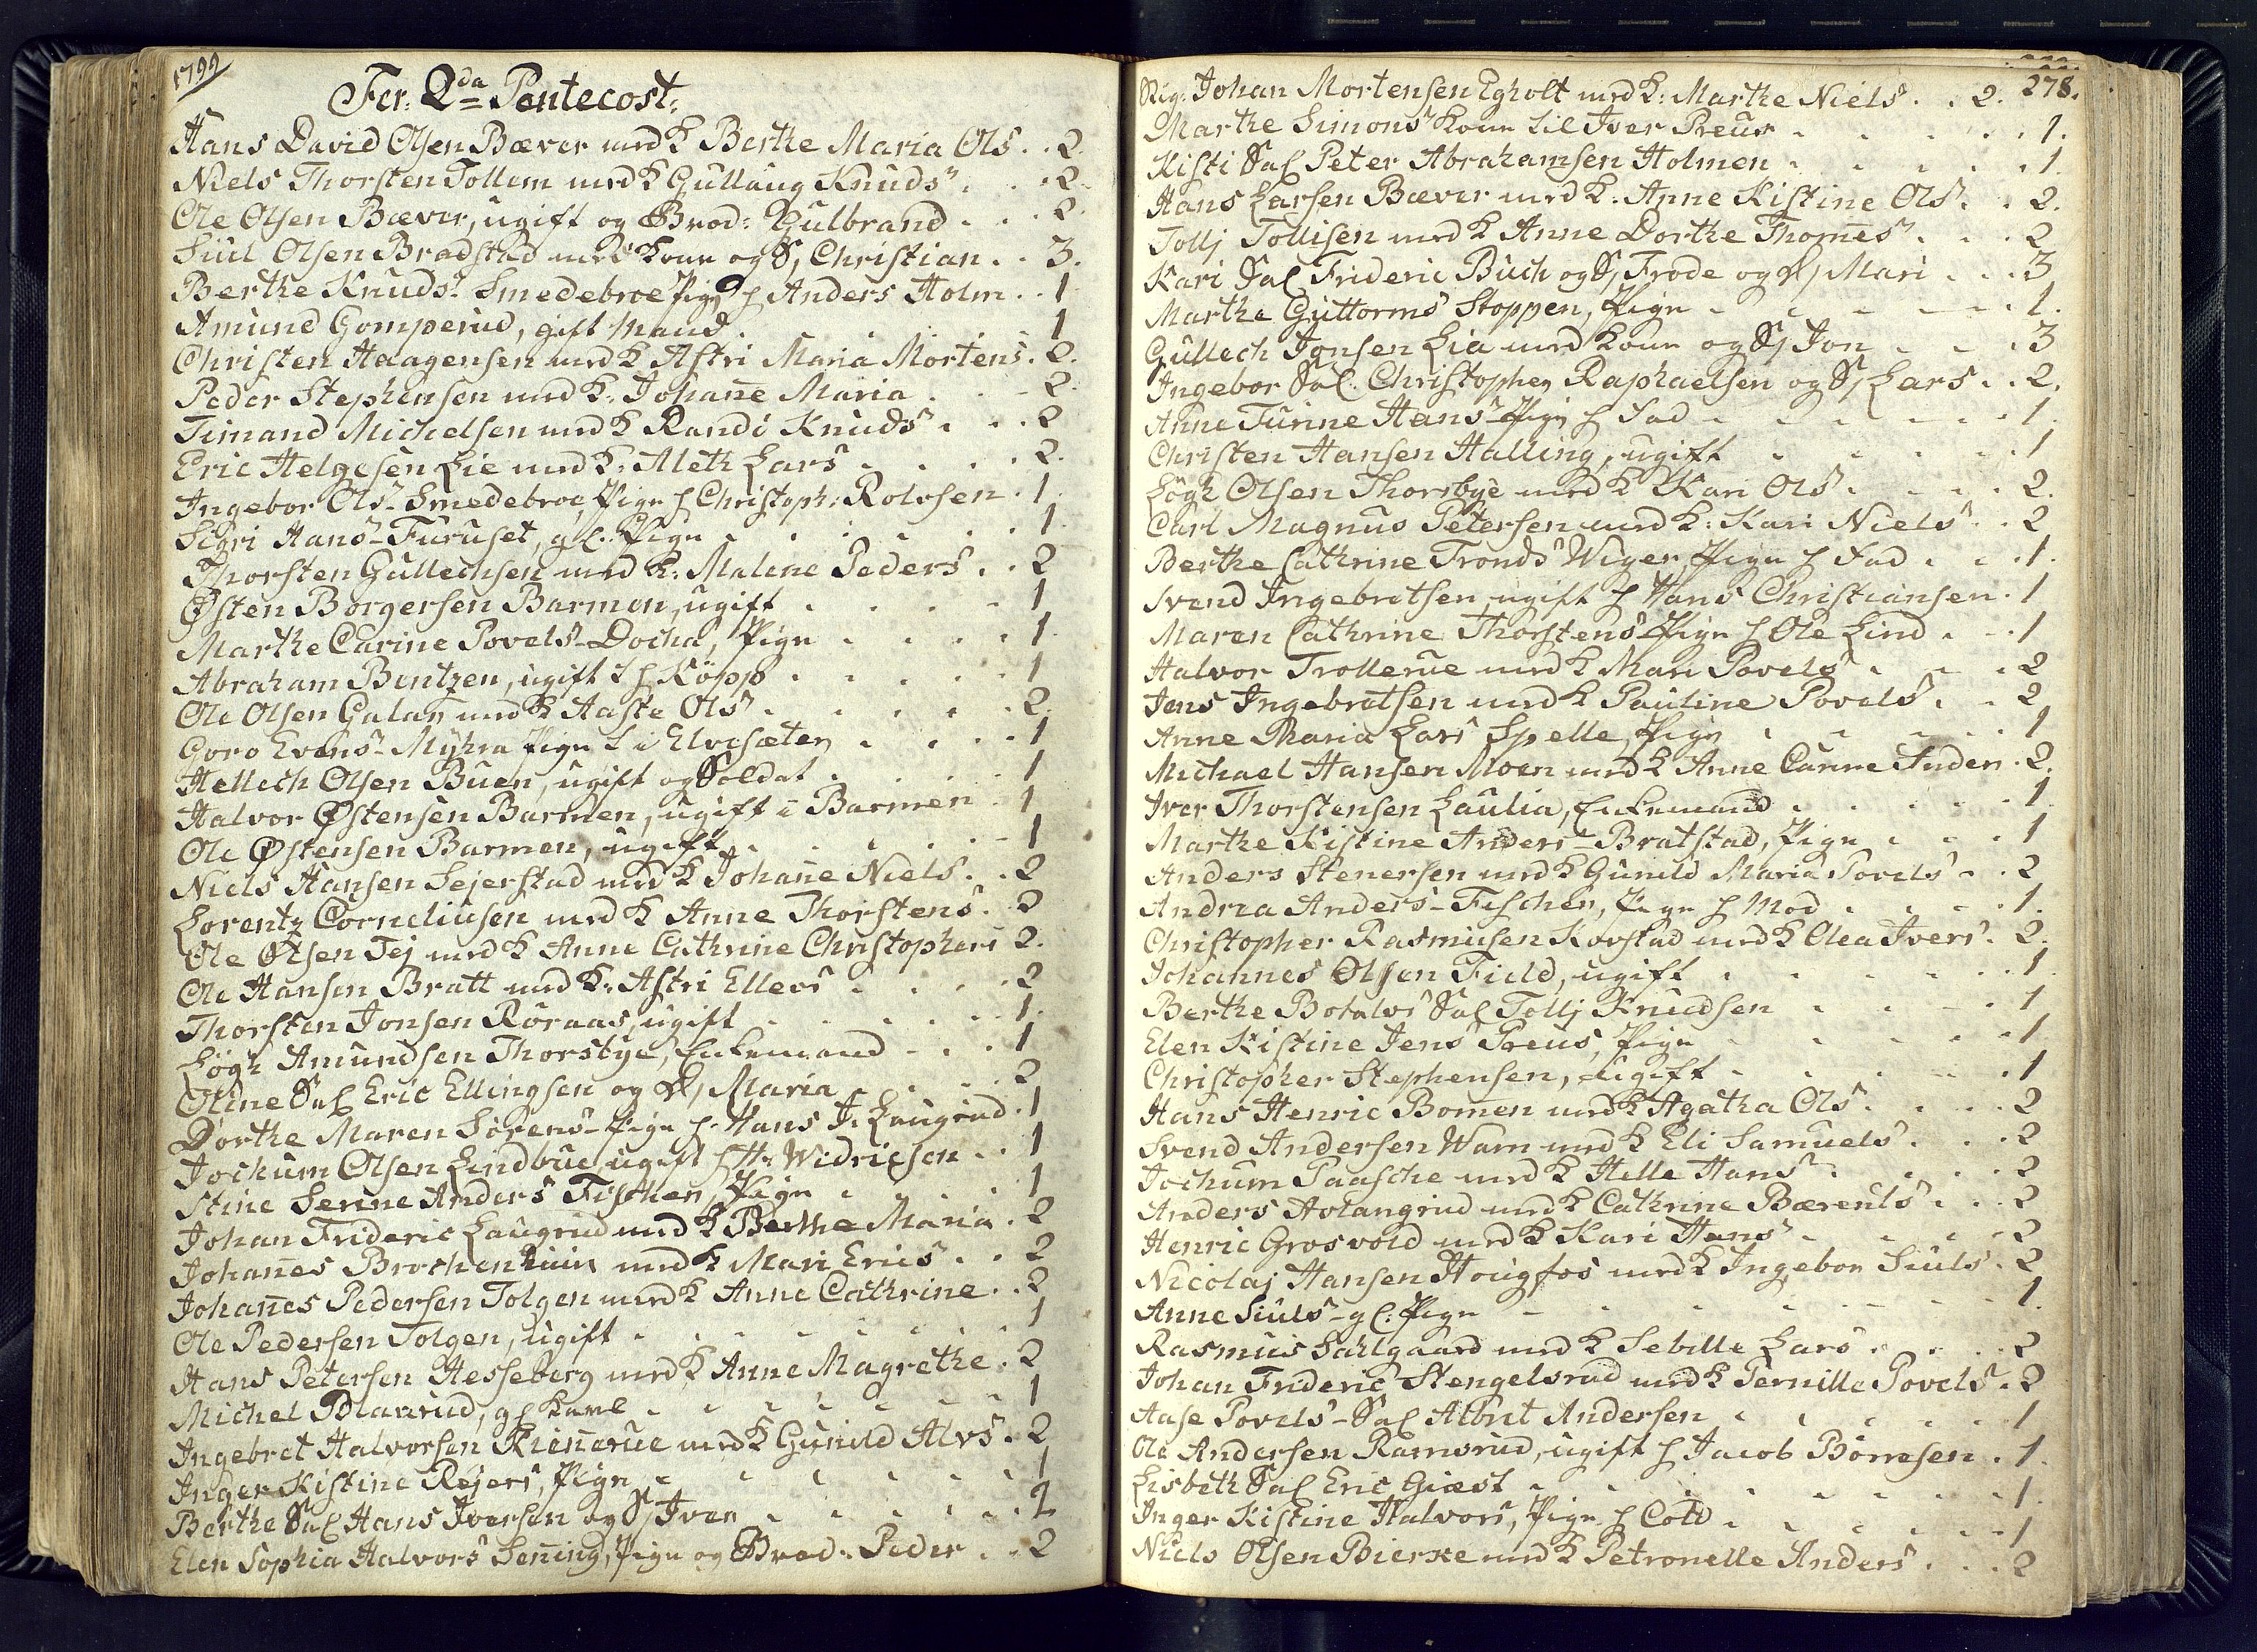 1799
Fer: 2da Pentecost:
Hans David Olsen Bæver med K Berthe Maria Ols . . 2.
Niels Thorsten Tollem med K Gullaug Knuds . . . 2.
Ole Olsen Bæver, ugift og Brod: Gulbrand . . . 2.
Siul Olsen Bradstad med Kone og S, Christian . . 3.
Berthe Knuds. Smedebroe Pige h Anders Holm . . 1
Amund Gomperud, gift Mand . . . 1
Christen Haagensen med K Astri Maria Mortens . 2.
Peder Stephensen med K: Johane Maria . . . 2.
Timand Michelsen med K Randi Knuds . . . 2
Eric Helgesen Lie med K: Aleth Lars . . . 2.
Ingebor Ols Smedebroe, Pige h Christoph: Rolvsen . 1.
Sigri Hans Furuset, gl. Pige . . . 1.
Thorsten Gullechsen med K: Malene Peders . . 2
Østen Borgersen Barmen, ugift . . . 1
Marthe Carine Povels Docka, Pige . . . 1.
Abraham Bentzen, ugift L h Köpp . . . 1
Ole Olsen Galaas med K Aaste Ols . . . 2.
Goro Evens Myhra Pige L i Elvesæter . . . 1
Hellech Olsen Buen, ugift og Soldat . . . 1
Halvor Østensen Barmen, ugift i Barmen . 1
Ole Østensen Barmen, ugift . . . 1
Niels Hansen Sejerstad med K Johane Niels . . 2
Lorentz Corneliusen med K Anne Thorstens . 2
Ole Olsen Tej med K Anne Cathrine Christophers 2.
Ole Hansen Bratt med K: Astri Ellevs . . . 2
Thorsten Jonsen Röraas, ugift . . . 1.
Högh Amundsen Thorsbye, Enkemand . . . 1
Oline Sal Eric Ellingsen og D, Maria . . . 2
Dorthe Maren Sörens Pige h. Hans J. Laugrud . 1
Jochum Olsen Lindbue ugift h H: Widricsen . . 1
Stine Senne Anders Fischer, Pige . . . 1
Johan Frideric Laugrud med K Berthe Maria . 2
Johanes Brochenhuus med K Mari Erics . . 2
Johanes Pedersen Tolgen med K Anne Cathrine . . 2
Ole Pedersen Tolgen, ugift . . . 1
Hans Petersen Hesseberg med K Anne Magrethe . 2
Michel Blaarud, gl Karl . . . 1
Ingebret Halvorsen Kiennerue med K Gunild Alvs . 2
Inger Kistine Rejers, Pige . . . 1
Berthe Sal Hans Iversen og S, Iver . . . 2
Elen Sophia Halvors Senning, Pige og Brod: Peder . . 2
278.
Sig: Johan Mortensen Egholt med K: Marthe Niels . . 2.
Marthe Simons Kone til Iver Preus . . . 1.
Kisti Sal Peter Abrahamsen Holmen . . . 1.
Hans Larsen Bæver med K: Anne Kistine Ols . . 2.
Tollj Tollisen med K Anne Dorthe Thomes . . . 2
Kari Sal Frideric Buch og S, Frode og D, Mari . . . 3
Marthe Guttorms Stoppen, Pige . . . 1.
Gullech Jonsen Lia med Kone og S, Jon . . . 3
Ingebor Sal. Christopher Raphaelsen og S, Lars . . 2.
Anne Turine Hans Pige h Fad . . . 1.
Christen Hansen Halling, ugift . . . 1
Högh Olsen Thorsbye med K Kari Ols . . . 2.
Carl Magnus Petersen med K: Kari Niels . . 2
Berthe Cathrine Tronds Wiger, Pige h Fad . . . 1.
Svend Ingebretsen ugift h Hans Christiansen . 1
Maren Cathrine Thorstens Pige h Ole Lind . . . 1
Halvor Trollerue med K Mari Povels . . . 2
Jens Ingebretsen med K Pauline Povels . . 2
Anne Maria Lars Spelle, Pige . . . 1
Michael Hansen Moen med K Anne Carine Suder . 2.
Iver Thorstensen Laulia, Enkemand . . . 1.
Marthe Kistine Anders Bratstad, Pige . . . 1
Anders Stenersen med K Gunild Maria Povels . . 2
Andrea Anders Fischer, Pige h Mod . . . 1.
Christopher Rasmusen Korstad med K Olea Ivers . 2.
Johannes Olsen Field, ugift . . . 1.
Berthe Botolvs Sal Tollj Knudsen . . . 1
Elen Kistine Jens Preus, Pige . . . 1
Christopher Stephensen, ugift . . . 1
Hans Henric Bomen med K Agatha Ols . . . 2
Svend Andersen Warn med K Eli Samuels . . . 2
Jochum Paasche med K Helle Hans . . . 2
Anders Avlangrud med K Cathrine Bærents . . . 2
Henric Grosvold med K Kari Hans . . . 2
Nicolaj Hansen Hougfos med K Ingebor Siuls . 2
Anne Siuls gl. Pige . . . 1.
Rasmus Sahlgaard med K Sebille Lars . . . 2
Johan Frideric Stengelsrud med K Pernille Povels . 2
Aase Povels Sal Albret Andersen . . . 1
Ole Andersen Ramsrud, ugift h Jacob Börresen . 1.
Lisbeth Sal Eric Giæst . . . 1.
Inger Kistine Halvors, Pige h Cold . . . 1
Niels Olsen Bierke med K Petronelle Anders . . . 2